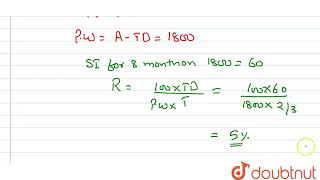 P.W = A - TD = 1800
SI for 8 month on 1800 = 60
R = 100 x TD / PW x T = 100 x 60 / 1800 x 2/3
= 5%.
doubtnut